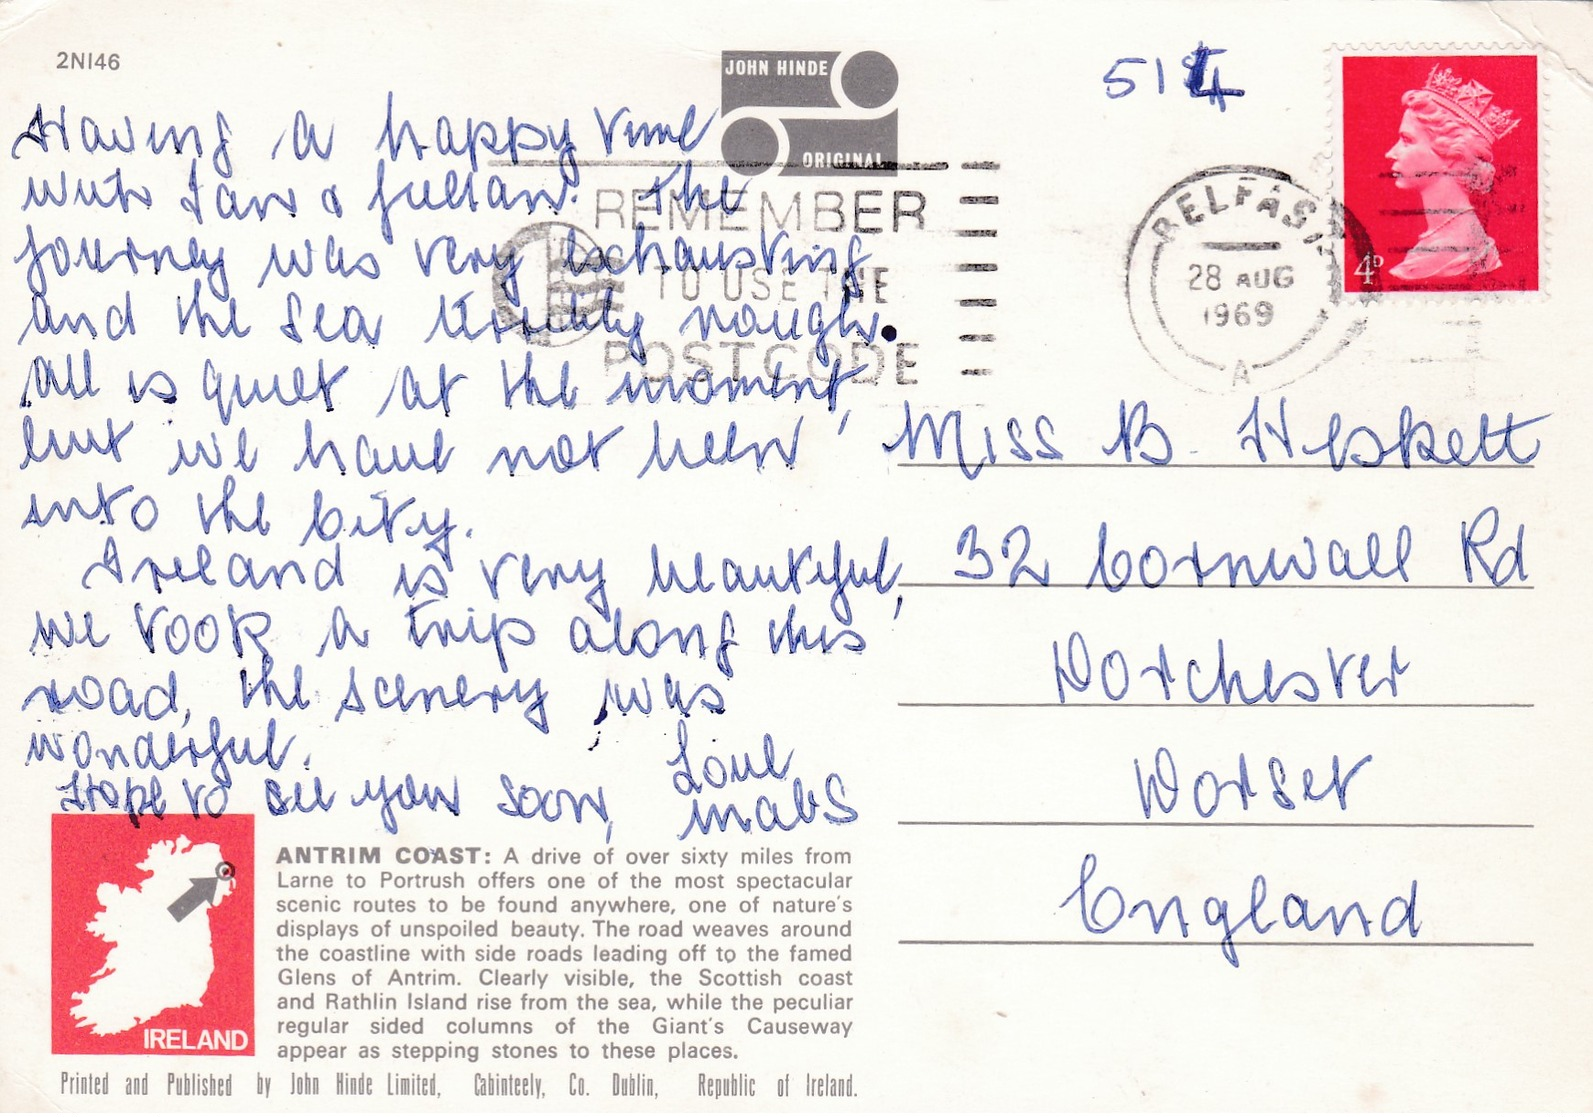 2NI46
JOHN HINDE
ORIGINAL
514
Having a happy time
with Ian & Jullian. The
journey was very exhausting
and the sea terribly rough.
all is quiet at the moment,
but we have not been
into the city.
Ireland is very beautiful,
we took a trip along this
road, the scenery was
wonderful.
Hope to see you soon,
Love
Mabs
REMEMBER
TO USE THE
POSTCODE
BELFAST
28 AUG
1969
A
4D
Miss B. Heskett
32 Cornwall Rd
Dorchester
Dorset
England
IRELAND
ANTRIM COAST: A drive of over sixty miles from
Larne to Portrush offers one of the most spectacular
scenic routes to be found anywhere, one of nature's
displays of unspoiled beauty. The road weaves around
the coastline with side roads leading off to the famed
Glens of Antrim. Clearly visible, the Scottish coast
and Rathlin Island rise from the sea, while the peculiar
regular sided columns of the Giant's Causeway
appear as stepping stones to these places.
Printed and Published by John Hinde Limited, Cabinteely, Co. Dublin, Republic of Ireland.